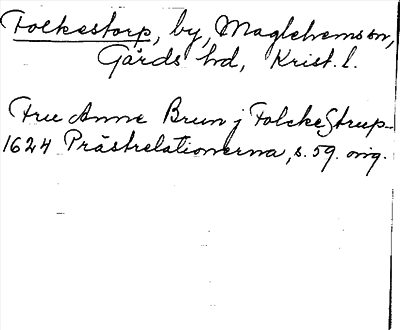 Folkestorp, by, Maglehems sn,
Gärds hd, Krist. l.
Fru Anne Brun j FolckeStrup
1624 Prästrelationerna, s. 59. orig.